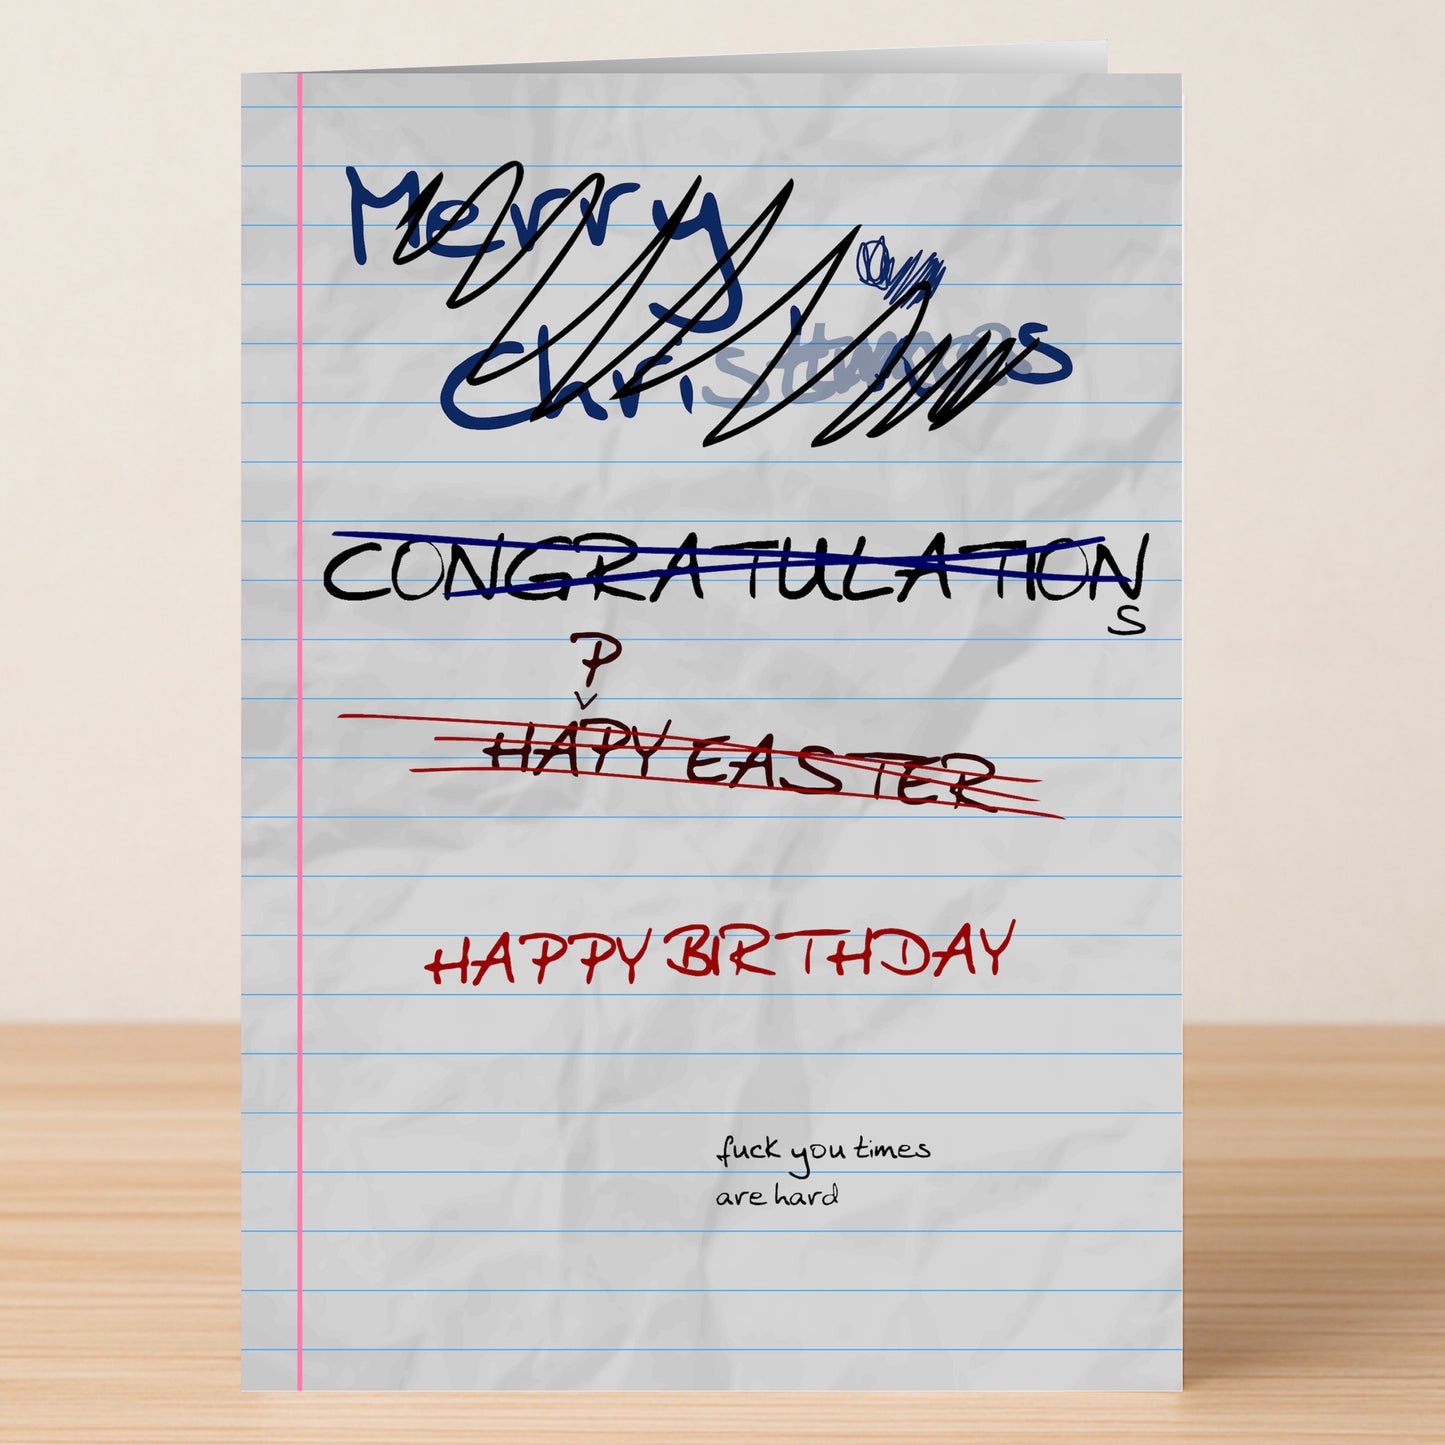 Merry
Christmas
CONGRATULATION
S
P
HAPY EASTER
HAPPY BIRTHDAY
fuck you times
are hard